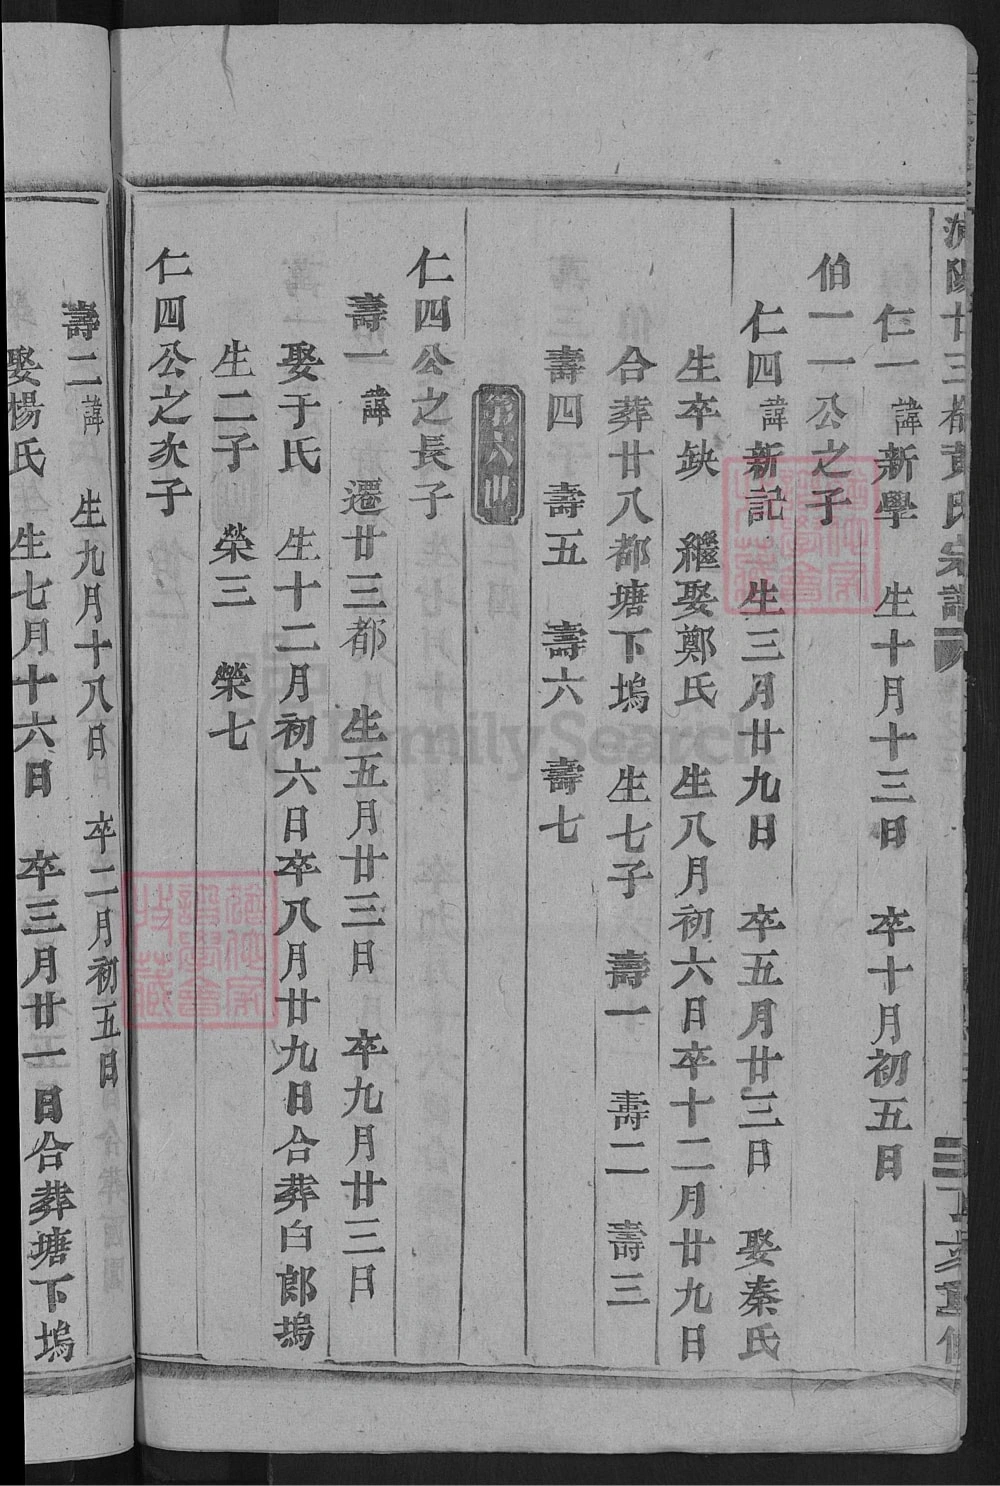 廿三都黃氏宗譜
仁一諱新學 生十月十三日 卒十月初五日
伯一一公之子
仁四諱新記 生三月廿九日 卒五月廿三日 娶秦氏
生卒缺 繼娶鄭氏 生八月初六日卒十二月廿九日
合葬廿八都塘下塢 生七子 壽一 壽二 壽三
壽四 壽五 壽六 壽七
第六世
仁四公之長子
壽一諱 遷廿三都 生五月廿三日 卒九月廿三日
娶于氏 生十二月初六日卒八月廿九日合葬白郎塢
生二子 榮三 榮七
仁四公之次子
壽二諱 生九月十八日 卒二月初五日
娶楊氏 生七月十六日 卒三月廿一日合葬塘下塢
FamilySearch